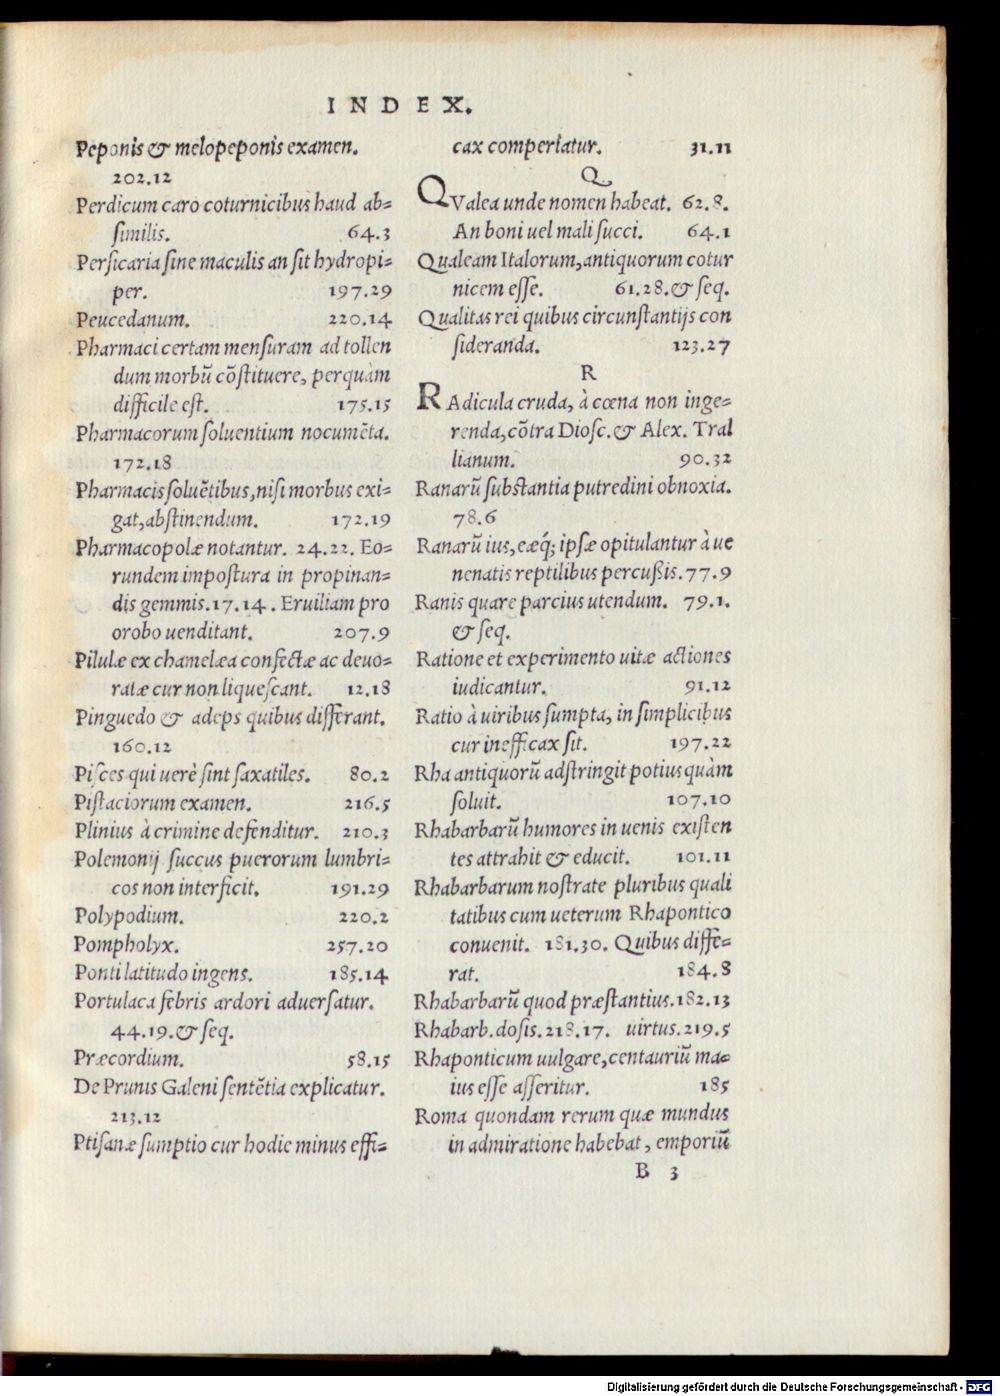 INDEX.
Peponis & melopeponis examen.
202.12
Perdicum caro coturnicibus haud ab=
similis. 64.3
Persicaria sine maculis an sit hydropi=
per. 197.29
Peucedanum. 220.14
Pharmaci certam mensuram ad tollen
dum morbū cōstituere, perquàm
difficile est. 175.15
Pharmacorum soluentium nocumēta.
172.18
Pharmacis soluētibus, nisi morbus exi=
gat, abstinendum. 172.19
Pharmacopolæ notantur. 24.22. Eo=
rundem impostura in propinan=
dis gemmis. 17.14. Eruiliam pro
orobo uenditant. 207.9
Pilulæ ex chamelæa confectæ ac deuo=
ratæ cur non liquescant. 12.18
Pinguedo & adeps quibus differant.
160.12
Pisces qui uerè sint saxatiles. 80.2
Pistaciorum examen. 216.5
Plinius à crimine defenditur. 210.3
Polemonij succus puerorum lumbri=
cos non interficit. 191.29
Polypodium. 220.2
Pompholyx. 257.20
Ponti latitudo ingens. 185.14
Portulaca febris ardori aduersatur.
44.19. & seq.
Præcordium. 58.15
De Prunis Galeni sentētia explicatur.
213.12
Ptisanæ sumptio cur hodie minus effi=
cax comperiatur. 31.11
Q
QValea unde nomen habeat. 62.8.
An boni uel mali succi. 64.1
Qualeam Italorum, antiquorum cotur
nicem esse. 61.28. & seq.
Qualitas rei quibus circunstantijs con
sideranda. 123.27
R
RAdicula cruda, à cœna non inge=
renda, cōtra Diosc. & Alex. Tral
lianum. 90.32
Ranarū substantia putredini obnoxia.
78.6
Ranarū ius, eæq́; ipsæ opitulantur à ue
nenatis reptilibus percußis. 77.9
Ranis quare parcius utendum. 79.1.
& seq.
Ratione et experimento uitæ actiones
iudicantur. 91.12
Ratio à uiribus sumpta, in simplicibus
cur inefficax sit. 197.22
Rha antiquorū adstringit potius quàm
soluit. 107.10
Rhabarbarū humores in uenis existen
tes attrahit & educit. 101.11
Rhabarbarum nostrate pluribus quali
tatibus cum ueterum Rhapontico
conuenit. 181.30. Quibus diffe=
rat. 184.8
Rhabarbarū quod præstantius. 182.13
Rhabarb. dosis. 218.17. uirtus. 219.5
Rhaponticum uulgare, centauriū ma=
ius esse asseritur. 185
Roma quondam rerum quæ mundus
in admiratione habebat, emporiū
B 3
Digitalisierung gefördert durch die Deutsche Forschungsgemeinschaft - DFG